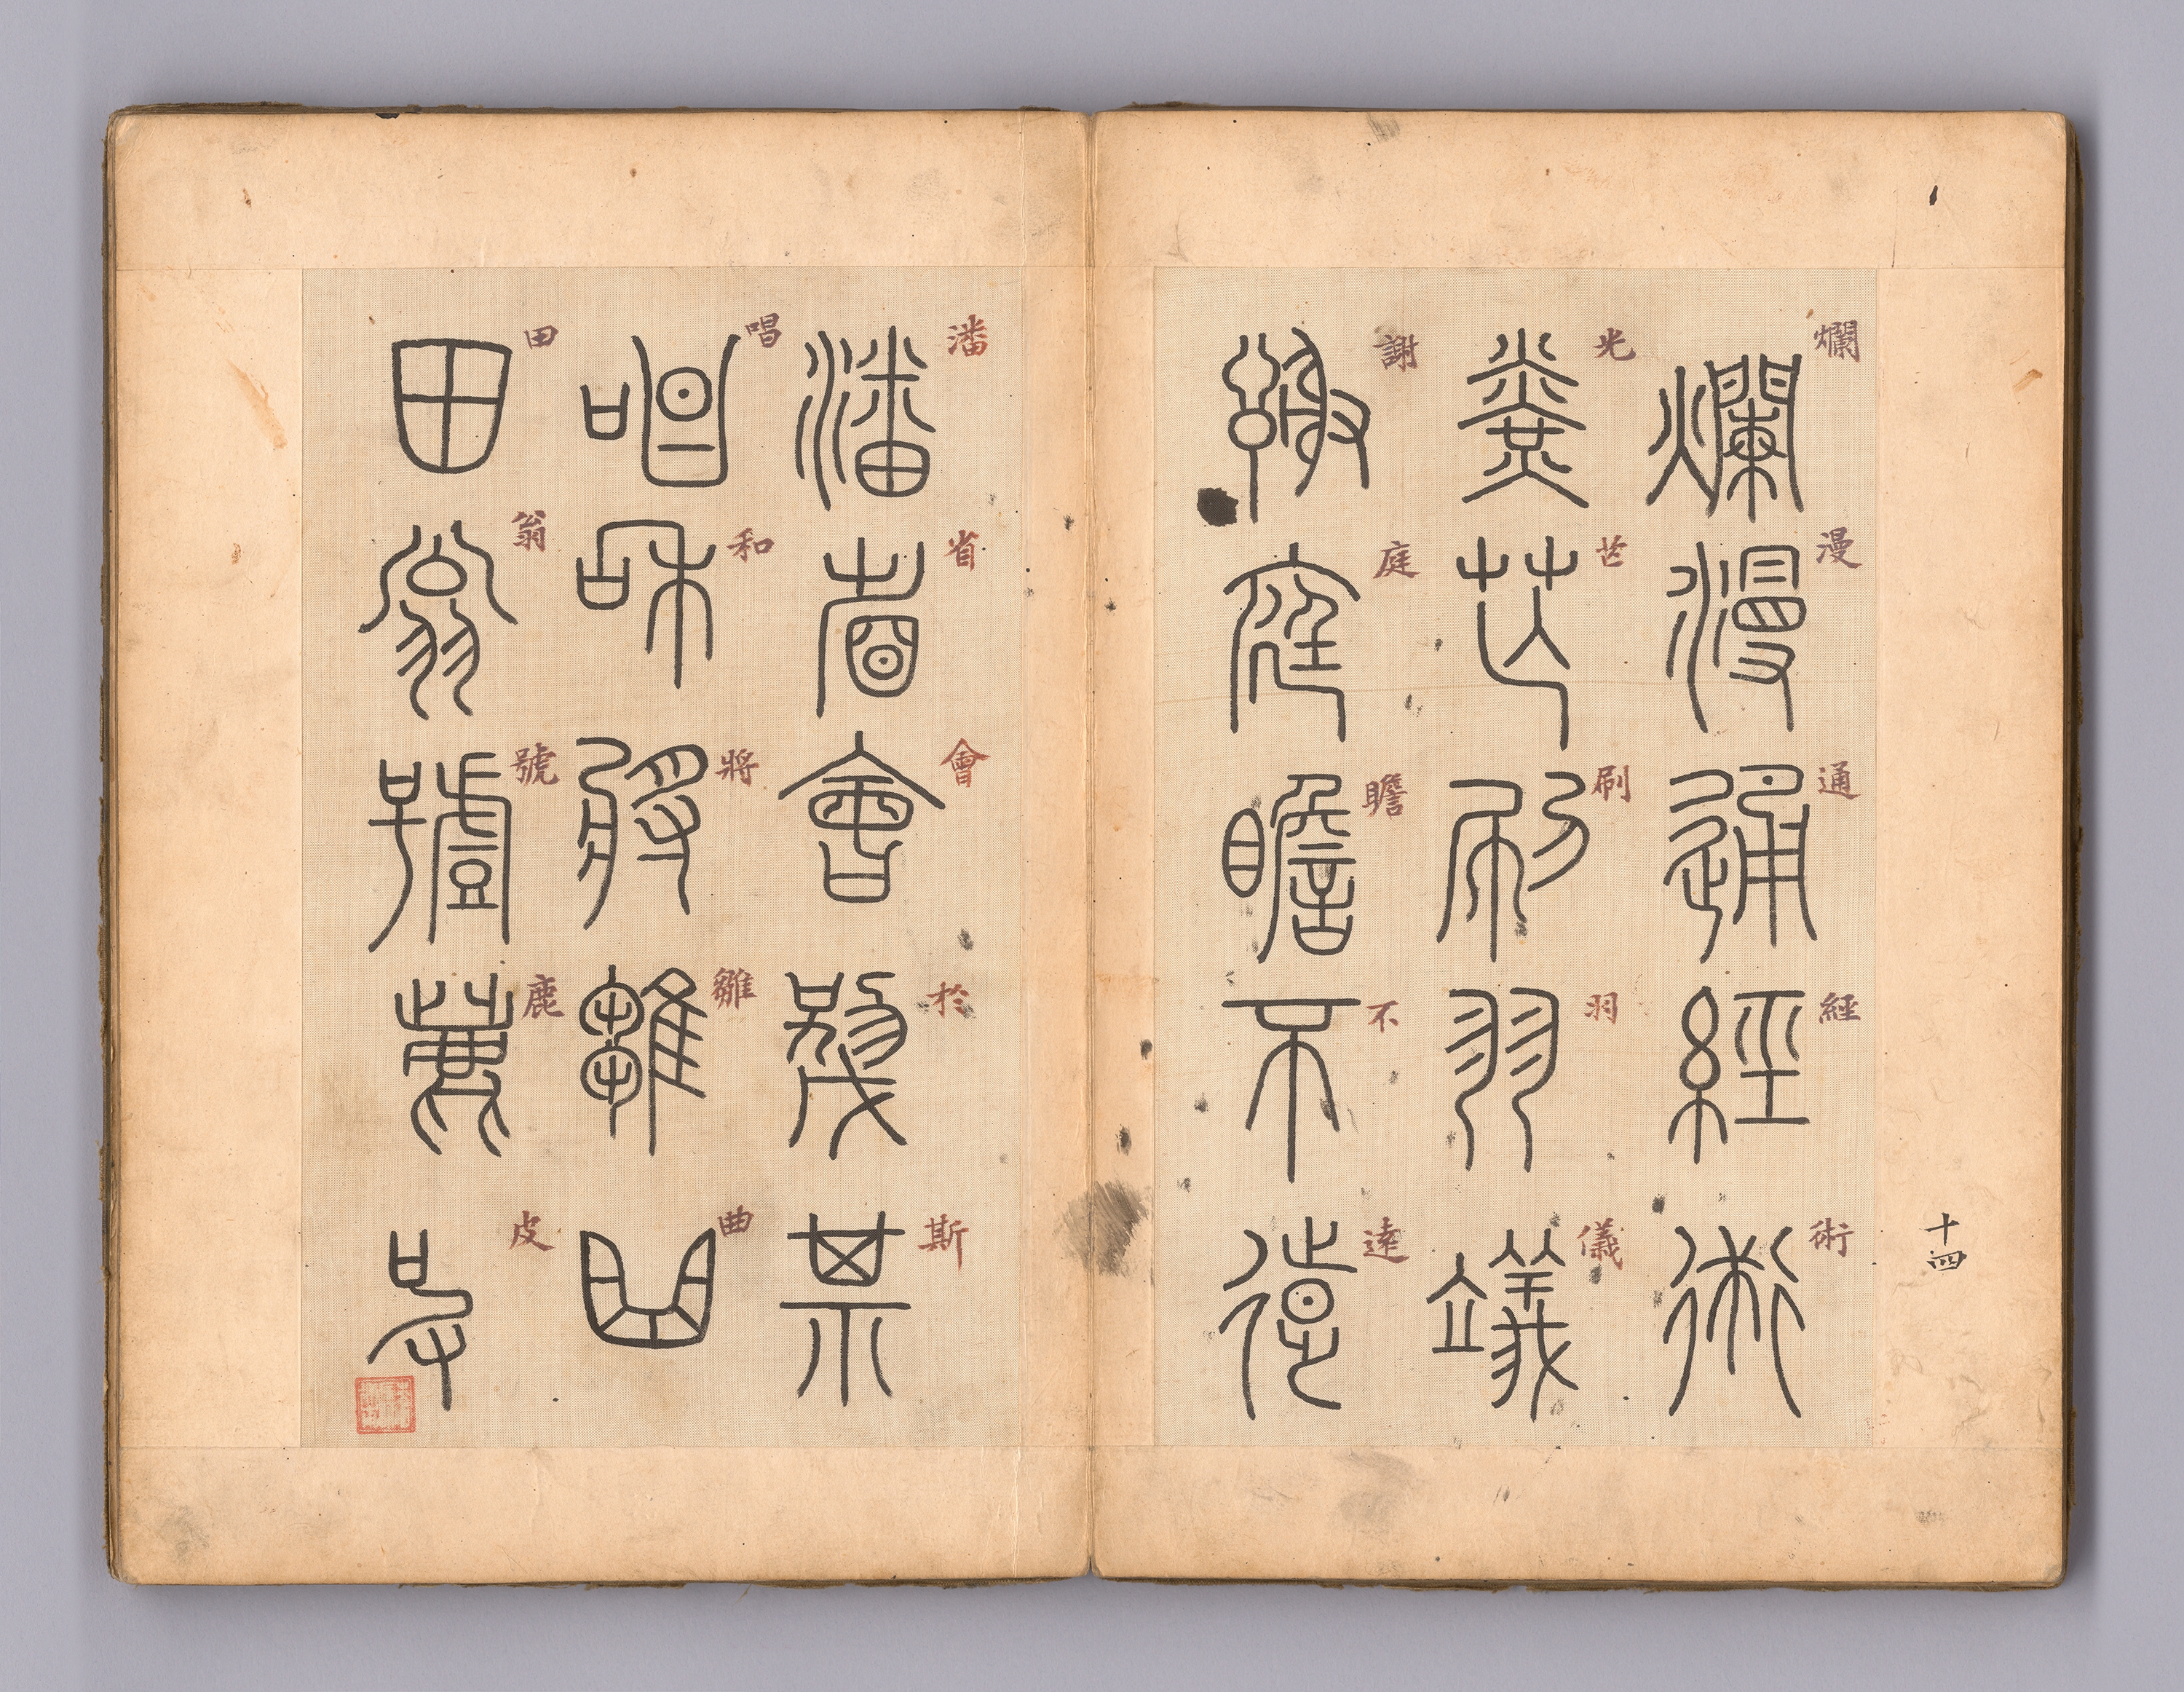 十四
爛漫通經術
爛漫通經術
光芒刷羽儀
光芒刷羽儀
謝庭瞻不遠
謝庭瞻不遠
潘省會於斯
潘省會於斯
唱和將雛曲
唱和將雛曲
田翁號鹿皮
田翁號鹿皮